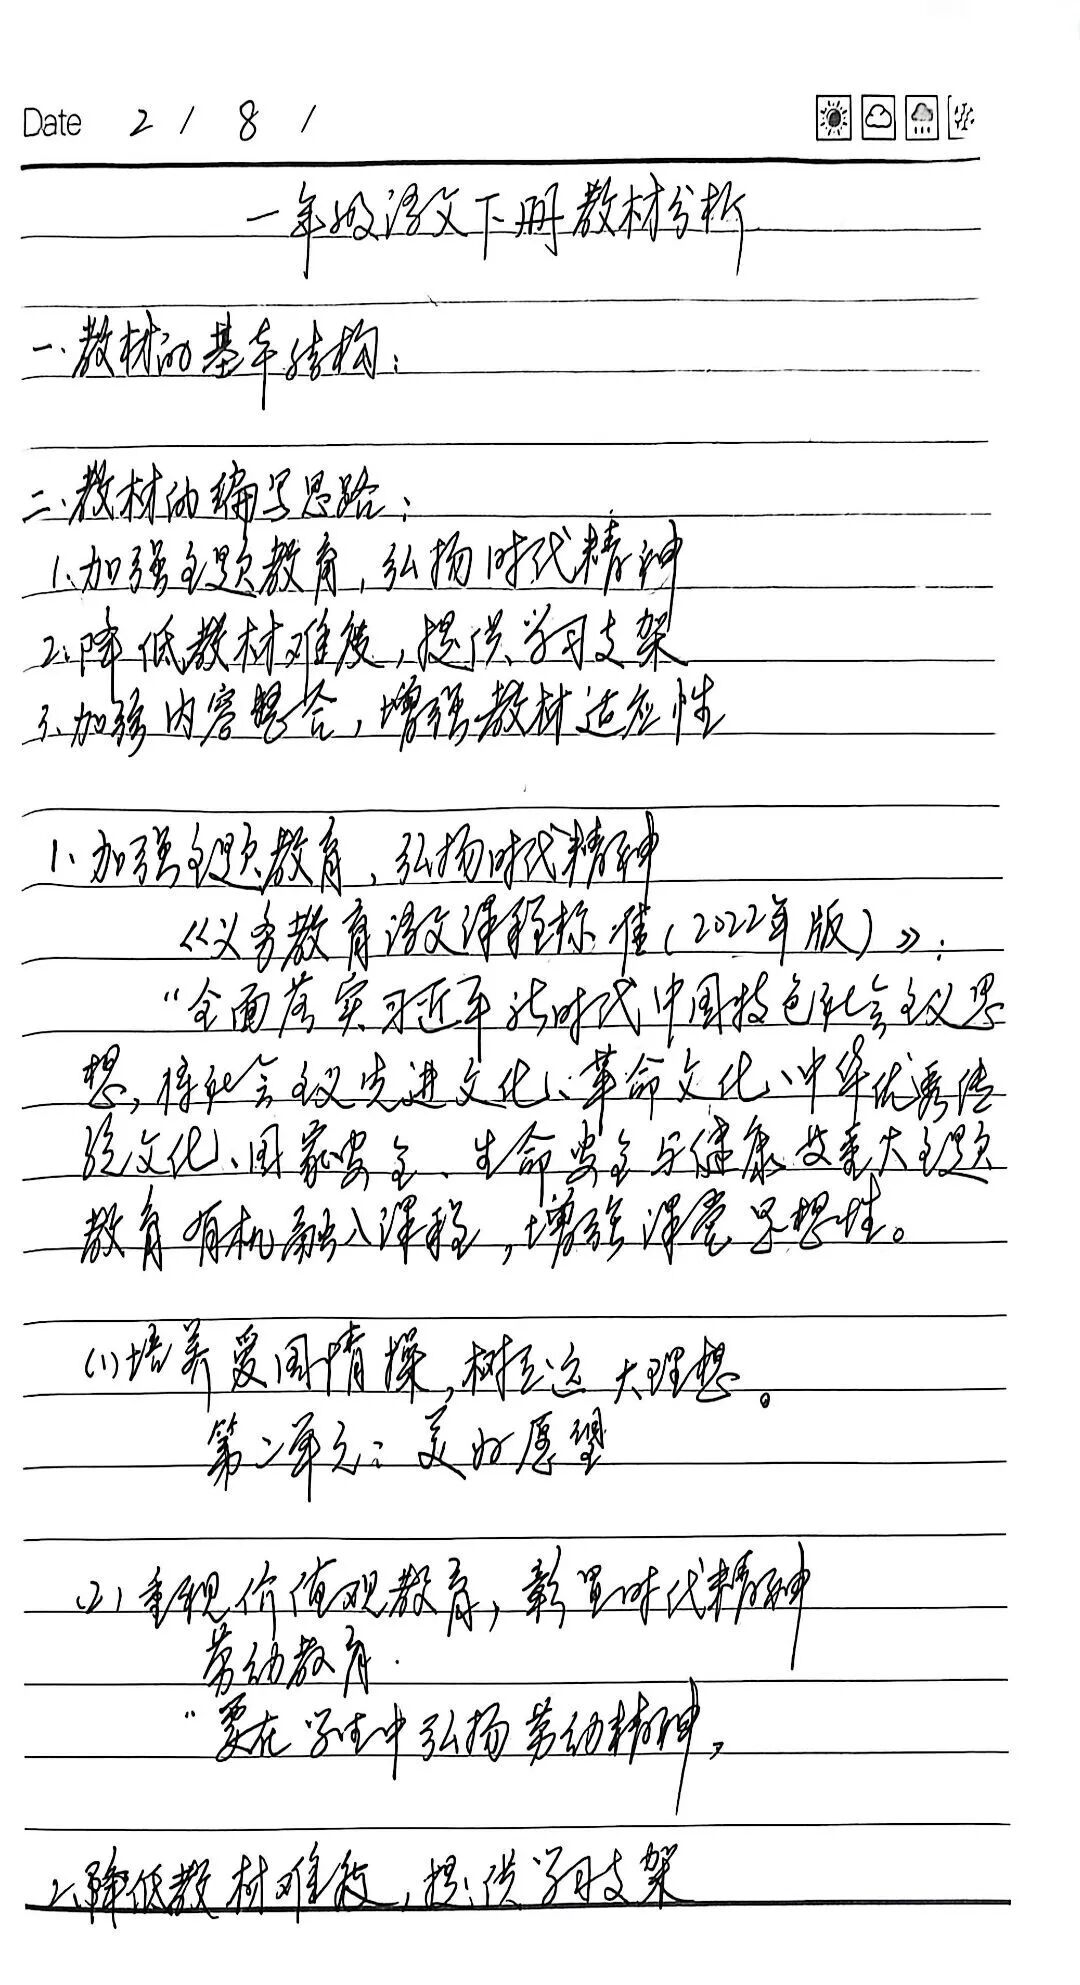 Date 2 / 8 /
一年级语文下册教材分析
一、教材的基本结构：
二、教材的编写思路：
1、加强主题教育，弘扬时代精神
2、降低教材难度，提供学习支架
3、加强内容整合，增强教材适应性
1、加强主题教育，弘扬时代精神
《义务教育语文课程标准（2022年版）》：
“全面落实习近平新时代中国特色社会主义思
想，将社会主义先进文化、革命文化、中华优秀传
统文化、国家安全、生命安全与健康等重大主题
教育有机融入课程，增强课堂思想性。
（1）培养爱国情操，树立远大理想。
第二单元：美好愿望
（2）重视价值观教育，彰显时代精神
劳动教育.
“要在学生中弘扬劳动精神，
2、降低教材难度，提供学习支架